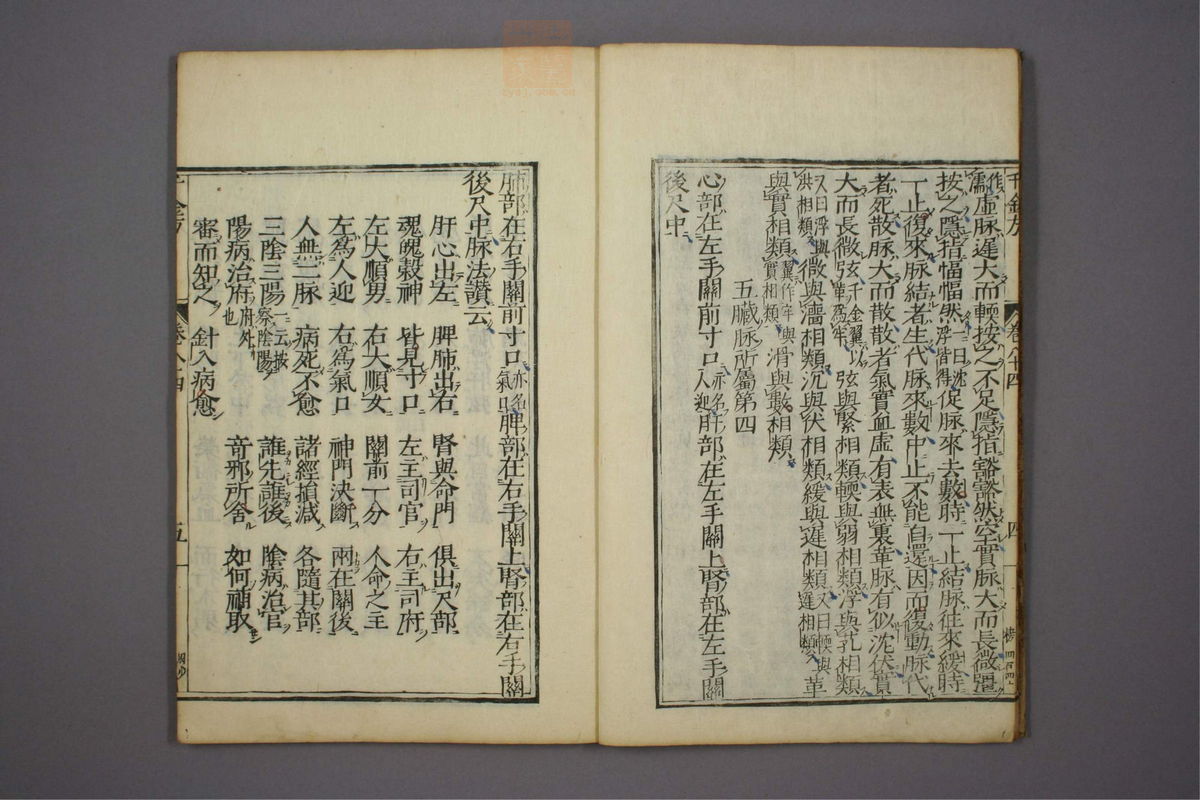 千金方 卷八十四 四
作濡虛脉遲大而輭按之不足隱指豁豁然空實脉大而長微彊
按之隱指愊愊然一曰沈浮皆得促脉來去數時一止結脉往來緩時
一止復來脉結者生代脉來數中止不能自還因而復動脉代
者死散脉大而散散者氣實血虛有表無裏革脉有似沈伏實
大而長微弦千金翼以革為牢弦與緊相類輭與弱相類浮與芤相類
又曰浮與洪相類微與濇相類沉與伏相類緩與遲相類又曰輭與遲相類革
與實相類翼作牢與實相類滑與數相類
五臟脉所屬第四
心部在左手關前寸口亦名人迎肝部在左手關上腎部在左手關
後尺中
肺部在右手關前寸口亦名氣口脾部在右手關上腎部在右手關
後尺中脉法讚云
肝心出左 脾肺出右 腎與命門 俱出尺部
魂魄榖神 皆見寸口 左主司官 右主司府
左大順男 右大順女 關前一分 人命之主
左爲人迎 右爲氣口 神門決斷 兩在關後
人無二脉 病死不愈 諸經損減 各隨其部
三陰三陽一云按察陰陽 誰先誰後 陰病治官
陽病治府府外也 奇邪所舍 如何補取
審而知之 針入病愈
千金方 卷八十四 五